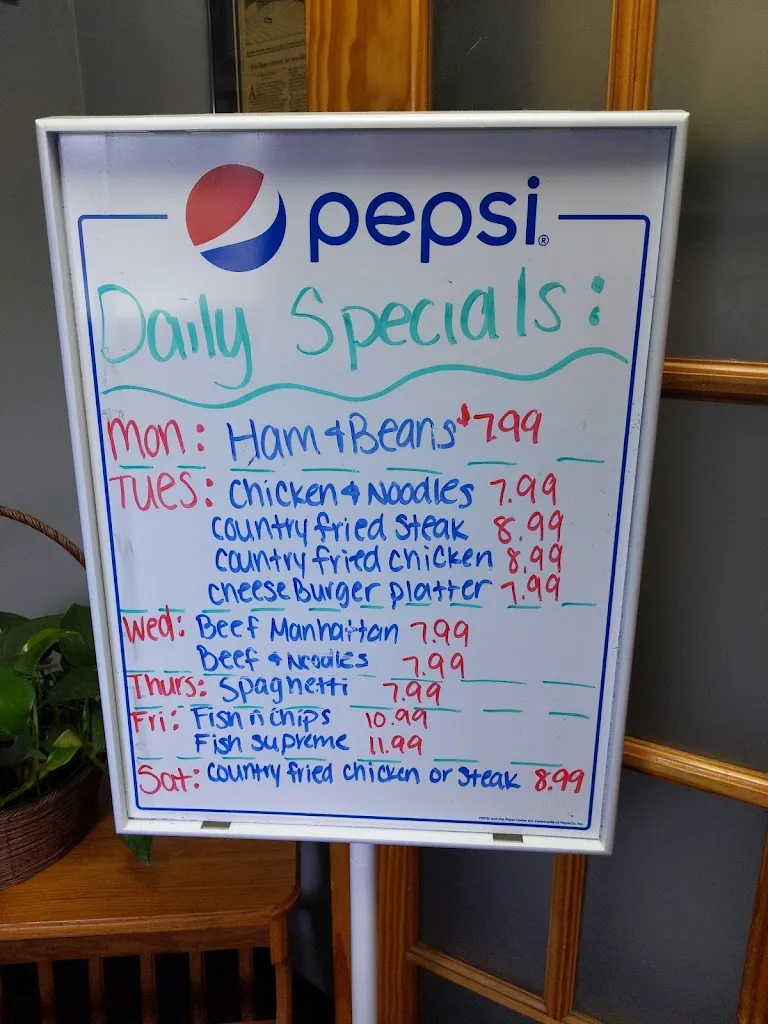 pepsi®
Daily Specials:
Mon: Ham & Beans $7.99
Tues: Chicken & Noodles 7.99
country fried steak 8.99
country fried chicken 8.99
cheeseBurger platter 7.99
Wed: Beef Manhattan 7.99
Beef & Noodles 7.99
Thurs: Spaghetti 7.99
Fri: Fish n chips 10.99
Fish supreme 11.99
Sat: country fried chicken or steak 8.99